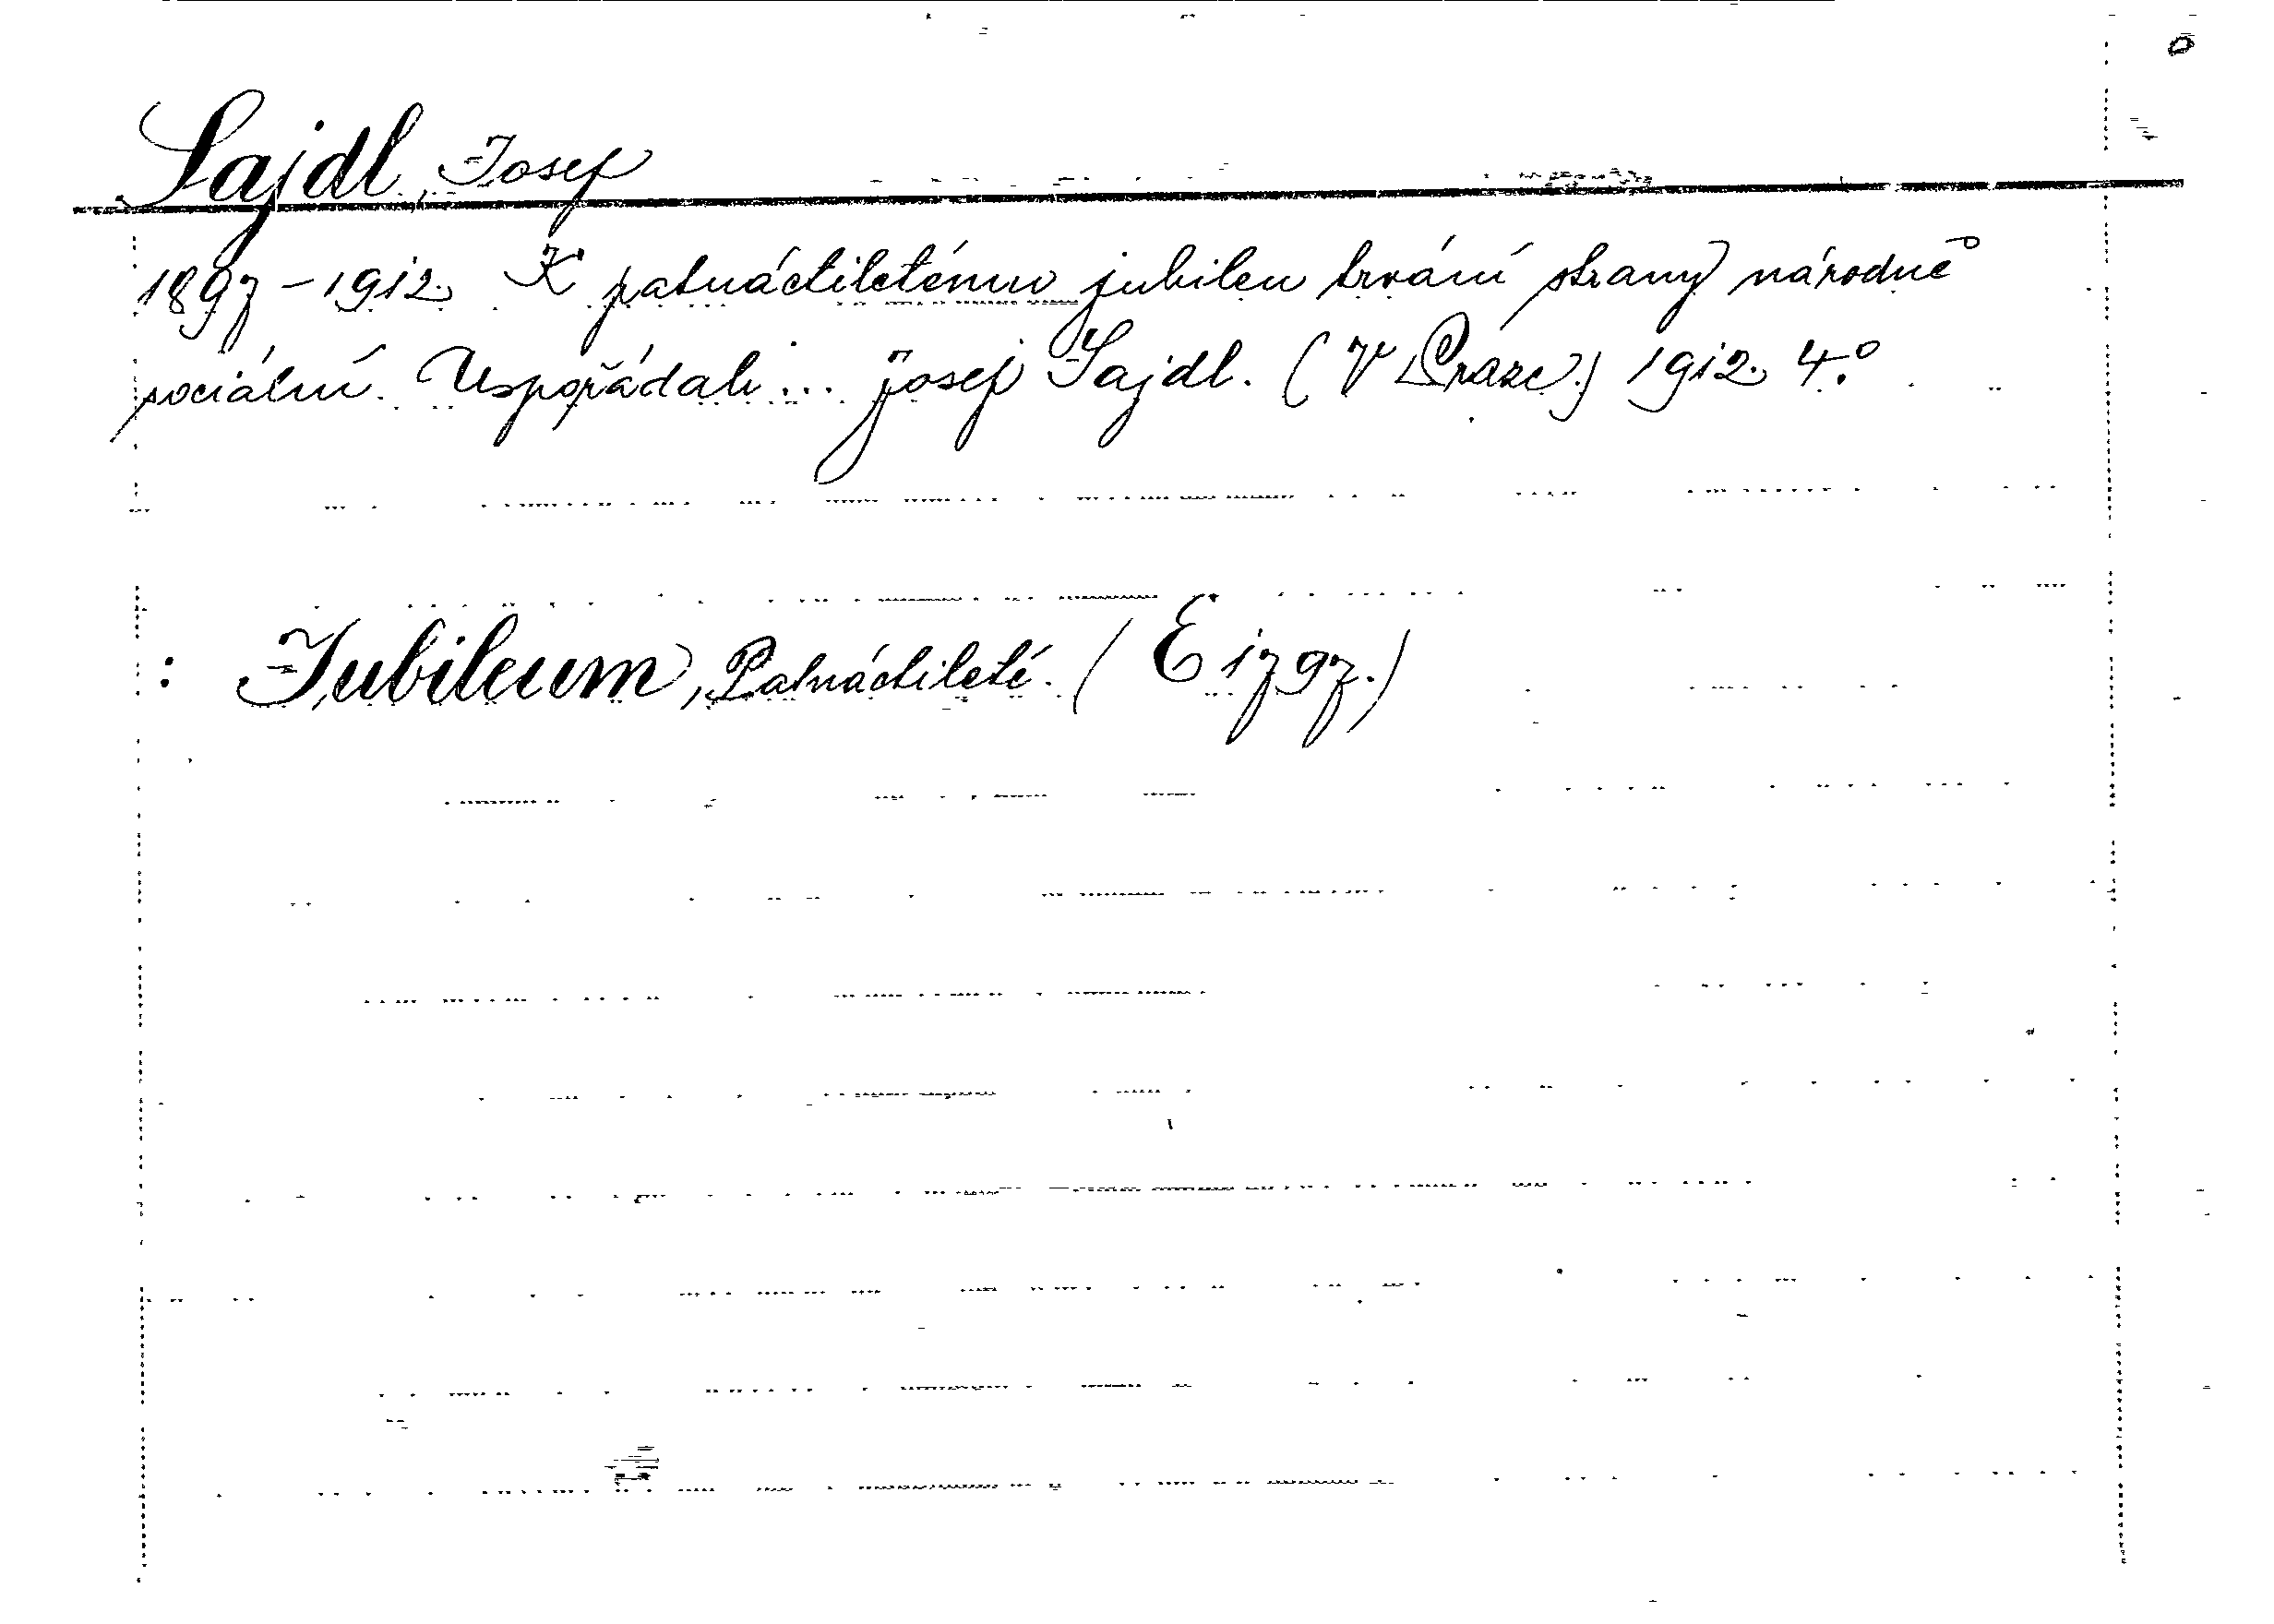 Sajdl, Josef
1897-1912. K patnáctiletému jubileu trvání strany národně
sociální. Uspořádali... Josef Sajdl. (V Praze.) 1912. 4.°
: Jubileum, Patnáctileté. (E 1797.)